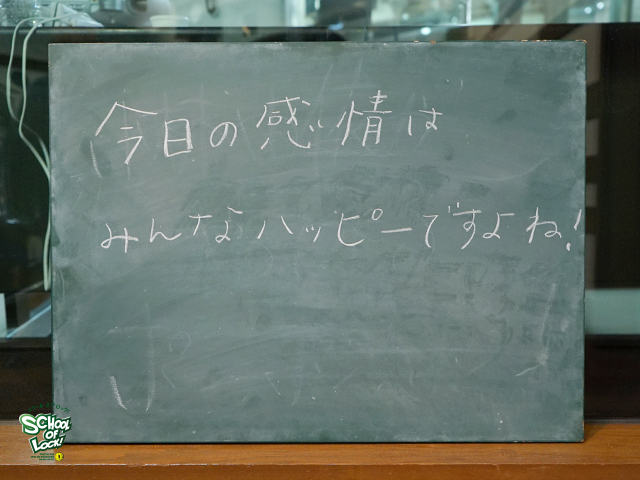 今日の感情は
みんなハッピーですよね!
SCHOOL
OF
LOCK!